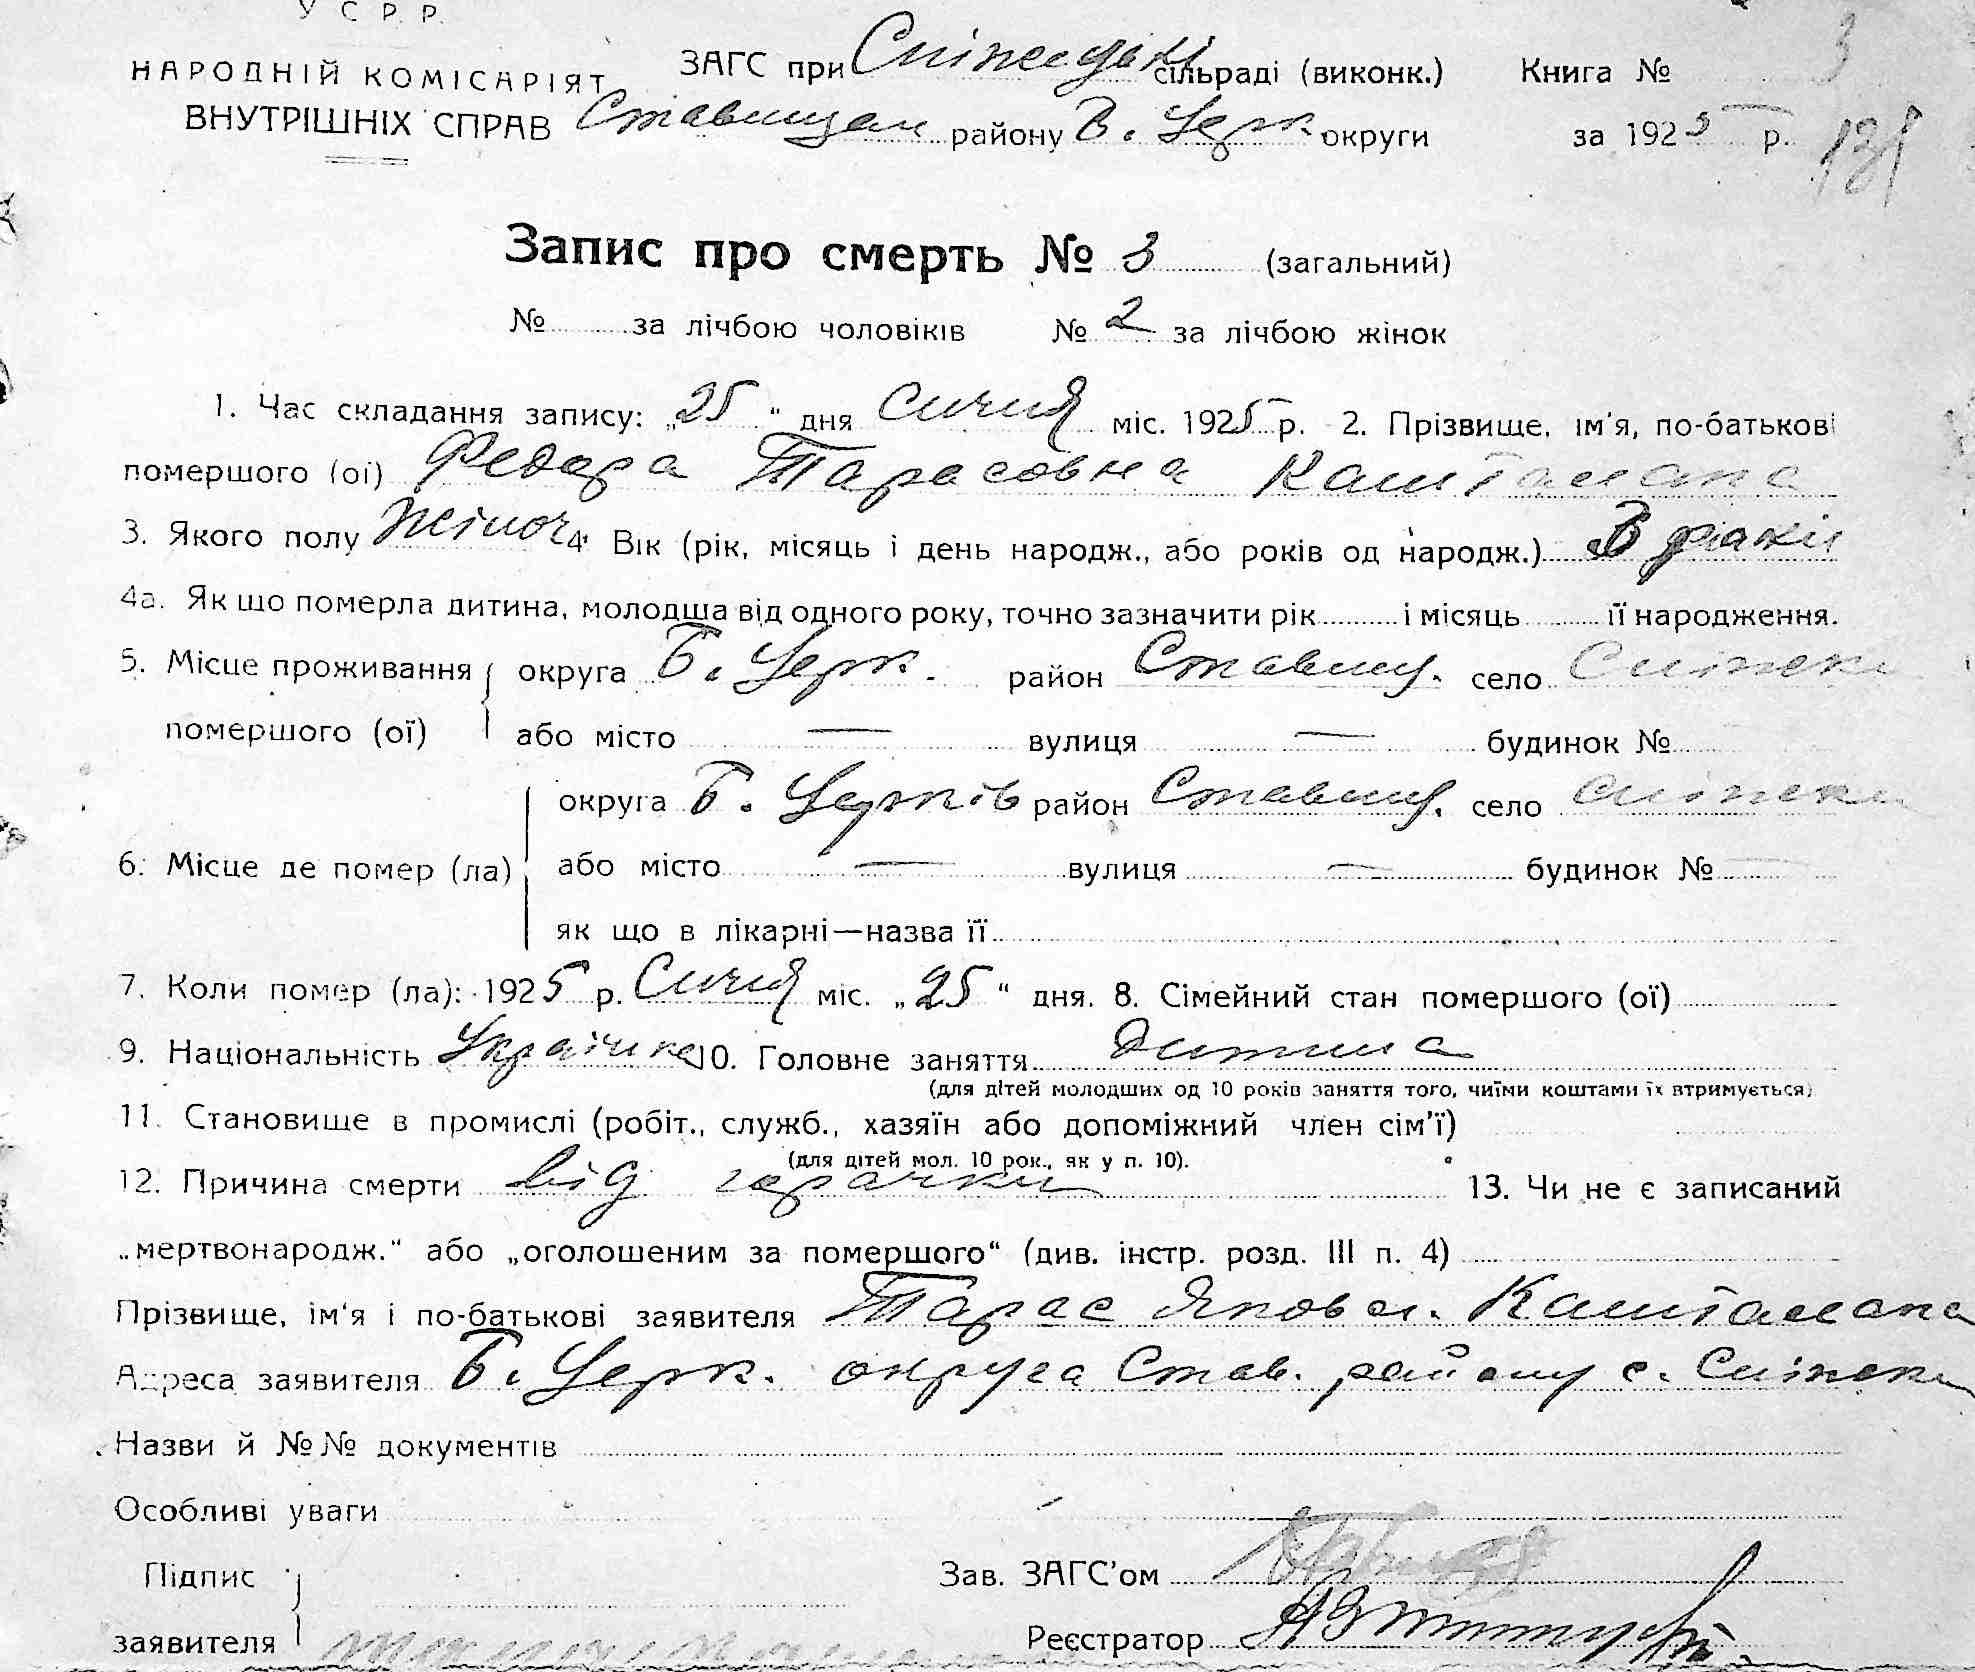 У С Р. Р.
НАРОДНІЙ КОМІСАРІЯТ ЗАГС при сільраді (виконк.) Книга № 3
ВНУТРІШНІХ СПРАВ Ставищан району Б. Церк. округи за 1925 р. 131
Запис про смерть № 3 (загальний)
№ за лічбою чоловіків № 2 за лічбою жінок
1. Час складання запису: „25“ дня Січня міс. 1925 р. 2. Прізвище, ім'я, по-батькові
помершого (ої) Федора Тарасовна Кашталана
3. Якого полу Жіноч 4. Вік (рік, місяць і день народж., або років од народж.)
4а. Як що померла дитина, молодша від одного року, точно зазначити рік і місяць її народження.
5. Місце проживання округа Б. Церк. район Ставищ. село
помершого (ої) або місто — вулиця — будинок №
округа Б. Церків район Ставищ. село
6. Місце де помер (ла) або місто — вулиця — будинок № —
як що в лікарні—назва її
7. Коли помер (ла): 1925 р. Січня міс. „25“ дня. 8. Сімейний стан помершого (ої)
9. Національність Українка 10. Головне заняття Дитина
(для дітей молодших од 10 років заняття того, чиїми коштами їх втримується)
11. Становище в промислі (робіт., служб., хазяїн або допоміжний член сім'ї)
(для дітей мол. 10 рок., як у п. 10).
12. Причина смерти від горячки 13. Чи не є записаний
„мертвонародж.“ або „оголошеним за помершого“ (див. інстр. розд. III п. 4)
Прізвище, ім'я і по-батькові заявителя Тарас Яковл. Кашталана
Адреса заявителя Б. Церк. округа Став. району с.
Назви й №№ документів
Особливі уваги
Підпис Зав. ЗАГС'ом
заявителя Реєстратор